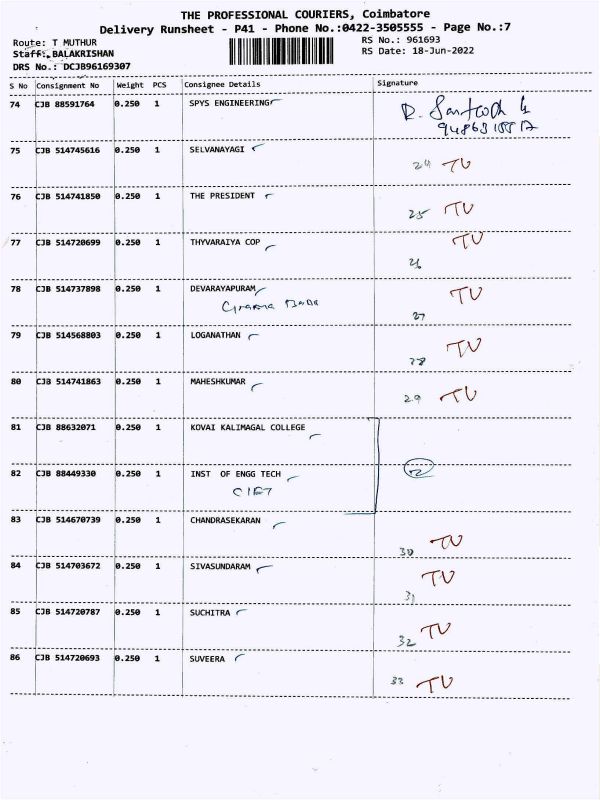 THE PROFESSIONAL COURIERS, Coimbatore
Delivery Runsheet - P41 - Phone No.:0422-3505555 - Page No.:7
Route: T MUTHUR
RS No.: 961693
Staff: BALAKRISHAN
RS Date: 18-Jun-2022
DRS No.: DCJB96169307
S No Consignment No Weight PCS Consignee Details Signature
74 CJB 88591764 0.250 1 SPYS ENGINEERING
75 CJB 514745616 0.250 1 SELVANAYAGI
24 TU
76 CJB 514741850 0.250 1 THE PRESIDENT
25 TU
77 CJB 514720699 0.250 1 THYVARAIYA COP TU
26
78 CJB 514737898 0.250 1 DEVARAYAPURAM TU
27
79 CJB 514568803 0.250 1 LOGANATHAN TU
28
80 CJB 514741863 0.250 1 MAHESHKUMAR
29 TU
81 CJB 88632071 0.250 1 KOVAI KALIMAGAL COLLEGE
82 CJB 88449330 0.250 1 INST OF ENGG TECH
CIET
83 CJB 514670739 0.250 1 CHANDRASEKARAN
30 TU
84 CJB 514703672 0.250 1 SIVASUNDARAM TU
31
85 CJB 514720787 0.250 1 SUCHITRA
32 TU
86 CJB 514720693 0.250 1 SUVEERA
33 TU